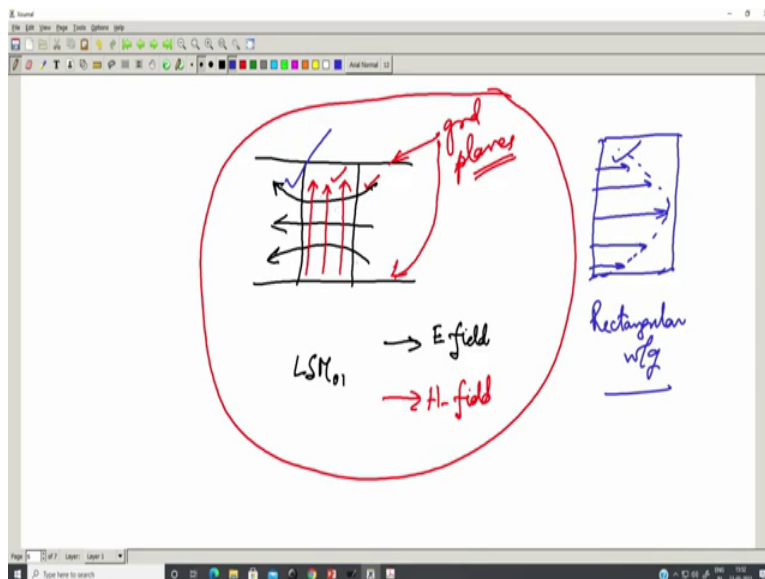 Xournal
File Edit View Page Tools Options Help
Arial Normal 12
gnd
planes
E field
LSM01
H-field
Rectangular
w/g
Page 6 of 7 Layer: Layer 1
Type here to search
ENG